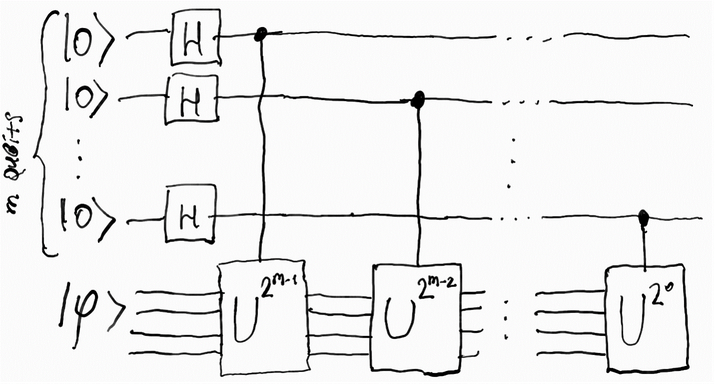 m QUBITS
|0⟩ H
|0⟩ H
|0⟩ H
|φ⟩ U^{2^{m-1}} U^{2^{m-2}} U^{2^0}